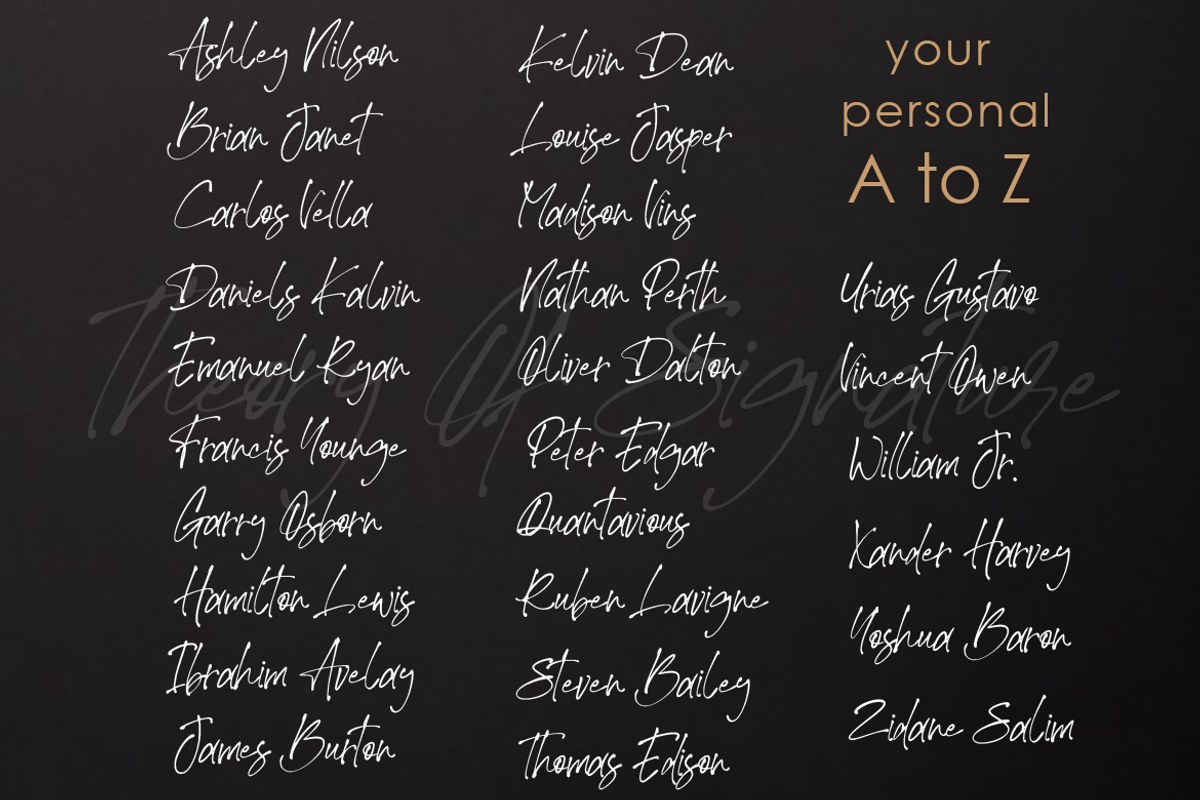 Ashley Nilson
Brian Janet
Carlos Vella
Daniels Kalvin
Emanuel Ryan
Francis Younge
Garry Osborn
Hamilton Lewis
Ibrahim Avelay
James Burton
Kelvin Dean
Louise Jasper
Madison Vins
Nathan Perth
Oliver Dalton
Peter Edgar
Quantavious
Ruben Lavigne
Steven Bailey
Thomas Edison
your
personal
A to Z
Urias Gustavo
Vincent Owen
William Jr.
Xander Harvey
Yoshua Baron
Zidane Salim
Theory Of Signature